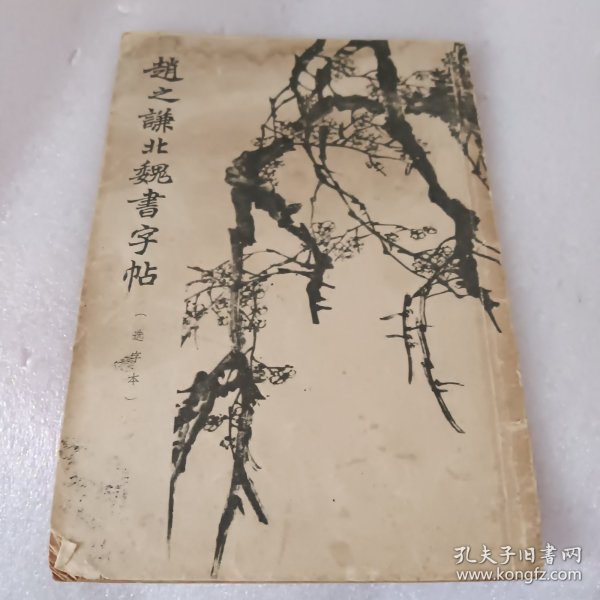 趙之謙北魏書字帖
（选字本）
孔夫子旧書网
www.kongfz.com